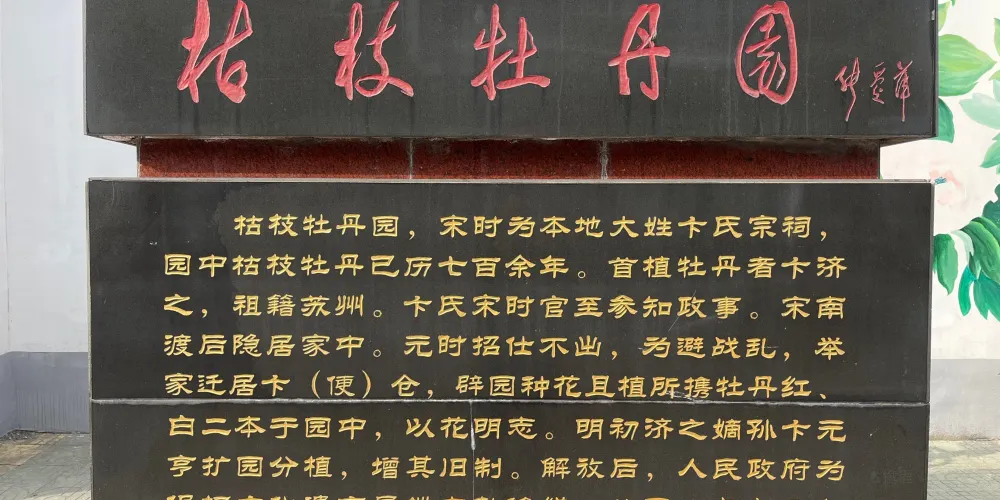 枯枝牡丹园
张爱萍
枯枝牡丹园，宋时为本地大姓卞氏宗祠，
园中枯枝牡丹已历七百余年。首植牡丹者卞济
之，祖籍苏州。卞氏宋时官至参知政事。宋南
渡后隐居家中。元时招仕不出，为避战乱，举
家迁居卞（便）仓，辟园种花且植所携牡丹红、
白二本于园中，以花明志。明初济之嫡孙卞元
亨扩园分植，增其旧制。解放后，人民政府为